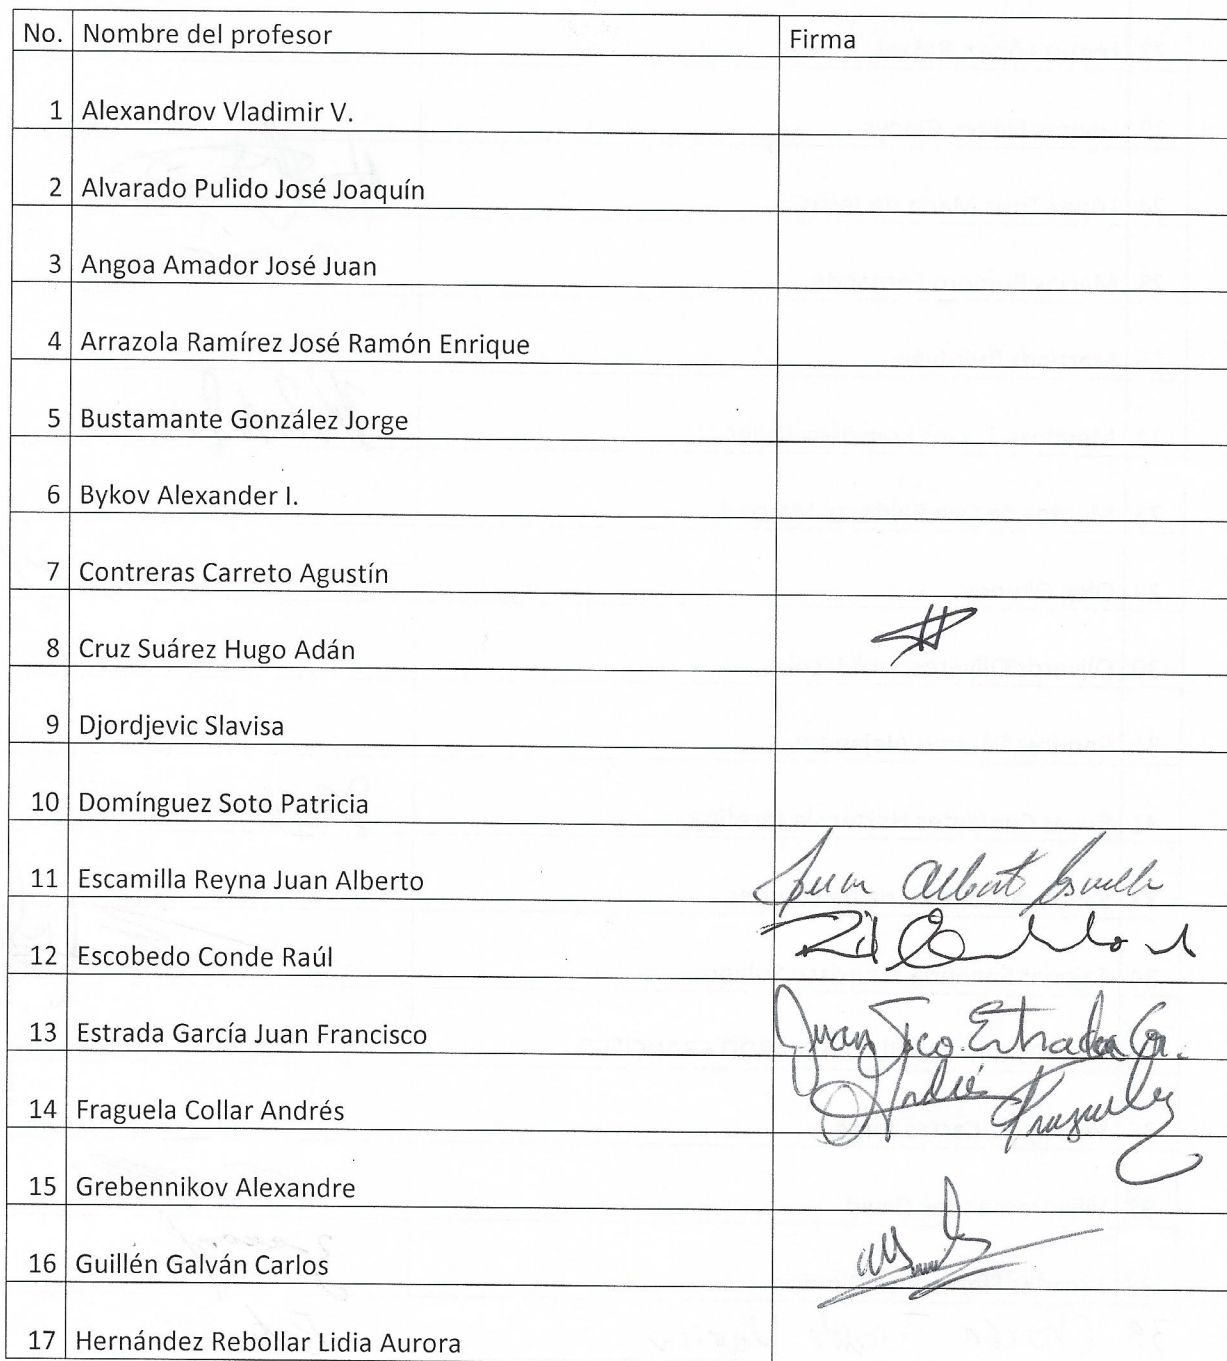 No. Nombre del profesor Firma
1 Alexandrov Vladimir V.
2 Alvarado Pulido José Joaquín
3 Angoa Amador José Juan
4 Arrazola Ramírez José Ramón Enrique
5 Bustamante González Jorge
6 Bykov Alexander I.
7 Contreras Carreto Agustín
8 Cruz Suárez Hugo Adán
9 Djordjevic Slavisa
10 Domínguez Soto Patricia
11 Escamilla Reyna Juan Alberto Juan Albert
12 Escobedo Conde Raúl
13 Estrada García Juan Francisco Juan Fco. Estrada Ga.
14 Fraguela Collar Andrés Andrés Fraguela
15 Grebennikov Alexandre
16 Guillén Galván Carlos
17 Hernández Rebollar Lidia Aurora